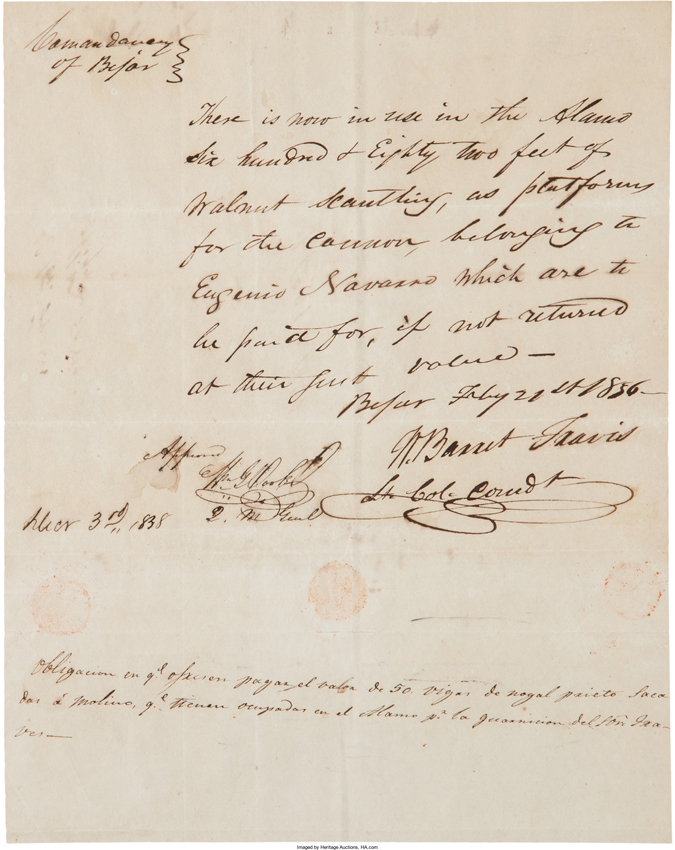 Comandancy
of Bejar
There is now in use in the Alamo
Six hundred & Eighty two feet of
Walnut scantling, as platforms
for the cannon, belonging to
Eugenio Navarro which are to
be paid for, if not returned
at their just value —
Bejar Feby 21st 1836—
W. Barret Travis
Lt. Col. Comdt
Approved
Wm G. Cooke
Q. M Genl
3rd, 1838
Obligacion en qe. ofresen pagar el valor de 50 vigas de nogal prieto saca-
das á molino, qe. tienen ocupadas en el Alamo pa. la guarnicion del Sõr. Tra-
ves—
Imaged by Heritage Auctions, HA.com